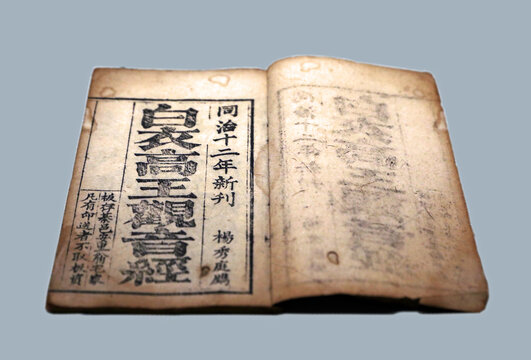 同治十二年新刊 楊秀庭鐫
白衣高王觀音經
凡有印送者不取板資